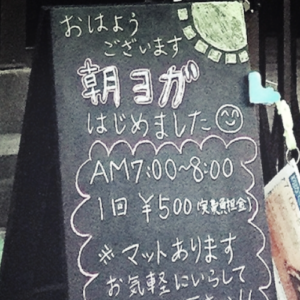 おはよう
ございます
朝ヨガ
はじめました
AM7:00~8:00
1回 ¥500(実費負担金)
※マットあります
お気軽にいらして